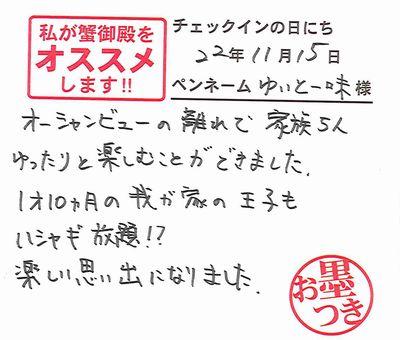 私が蟹御殿を
オススメ
します!!
チェックインの日にち
22年11月15日
ペンネーム ゆいと一味 様
オーシャンビューの離れで 家族5人
ゆったりと楽しむことができました.
1才10ヵ月の我が家の王子も
ハシャギ放題!?
楽しい思い出になりました.
お墨つき